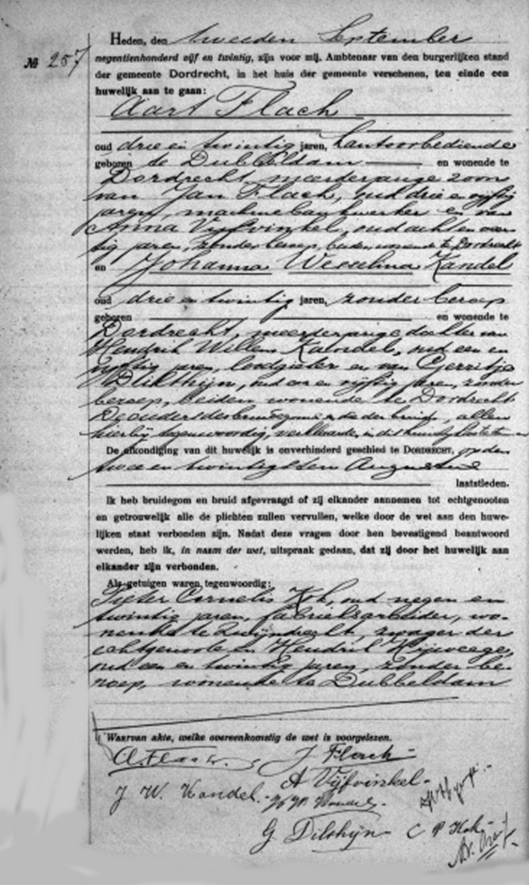 Heden, den tweeden September
№ 257
negentienhonderd vijf en twintig, zijn voor mij, Ambtenaar van den burgerlijken stand
der gemeente Dordrecht, in het huis der gemeente verschenen, ten einde een
huwelijk aan te gaan:
Aart Flach
oud drie en twintig jaren, kantoorbediende
geboren te Dubbeldam en wonende te
Dordrecht, meerderjarige zoon
van Jan Flach, oud drie en vijftig
jaren, machinebankwerker en van
Anna Vijfvinkel, oud acht en veer-
tig jaren, zonder beroep, beiden wonende te Dordrecht
en Johanna Wesselina Kandel
oud drie en twintig jaren, zonder beroep
geboren en wonende te
Dordrecht, meerderjarige dochter van
Hendrik Willem Kandel, oud een en
vijftig jaren, loodgieter en van Gerritje
oud een en vijftig jaren, zonder
beroep, beiden wonende te Dordrecht
De ouders des bruidegoms en die der bruid, allen
hierbij tegenwoordig, verklaarden in dit huwelijk toe te stemmen
De afkondiging van dit huwelijk is onverhinderd geschied te Dordrecht, op den
twee en twintigsten Augustus
laatstleden.
Ik heb bruidegom en bruid afgevraagd of zij elkander aannemen tot echtgenooten
en getrouwelijk alle de plichten zullen vervullen, welke door de wet aan den huwe-
lijken staat verbonden zijn. Nadat deze vragen door hen bevestigend beantwoord
werden, heb ik, in naam der wet, uitspraak gedaan, dat zij door het huwelijk aan
elkander zijn verbonden.
Als getuigen waren tegenwoordig:
Pieter Cornelis Kok, oud negen en
twintig jaren, fabrieksarbeider, wo-
nende te Zwijndrecht, zwager der
echtgenoote en Hendrik
oud een en twintig jaren, zonder be-
roep, wonende te Dubbeldam
Waarvan akte, welke overeenkomstig de wet is voorgelezen.
A Flach. J Flach
J W Kandel. A Vijfvinkel
Kandel
G C P Kok